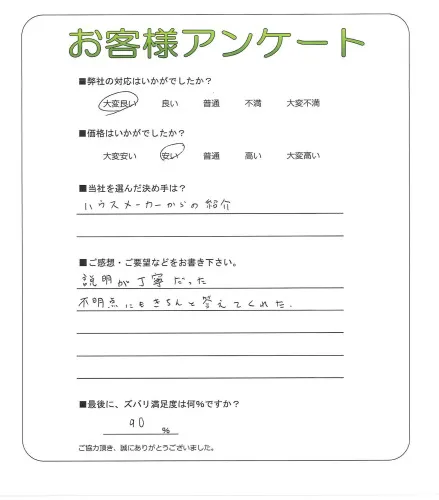 お客様アンケート
■弊社の対応はいかがでしたか？
大変良い 良い 普通 不満 大変不満
■価格はいかがでしたか？
大変安い 安い 普通 高い 大変高い
■当社を選んだ決め手は？
ハウスメーカーからの紹介
■ご感想・ご要望などをお書き下さい。
説明が丁寧だった
不明点にもきちんと答えてくれた.
■最後に、ズバリ満足度は何%ですか？
90 %
ご協力頂き、誠にありがとうございました。